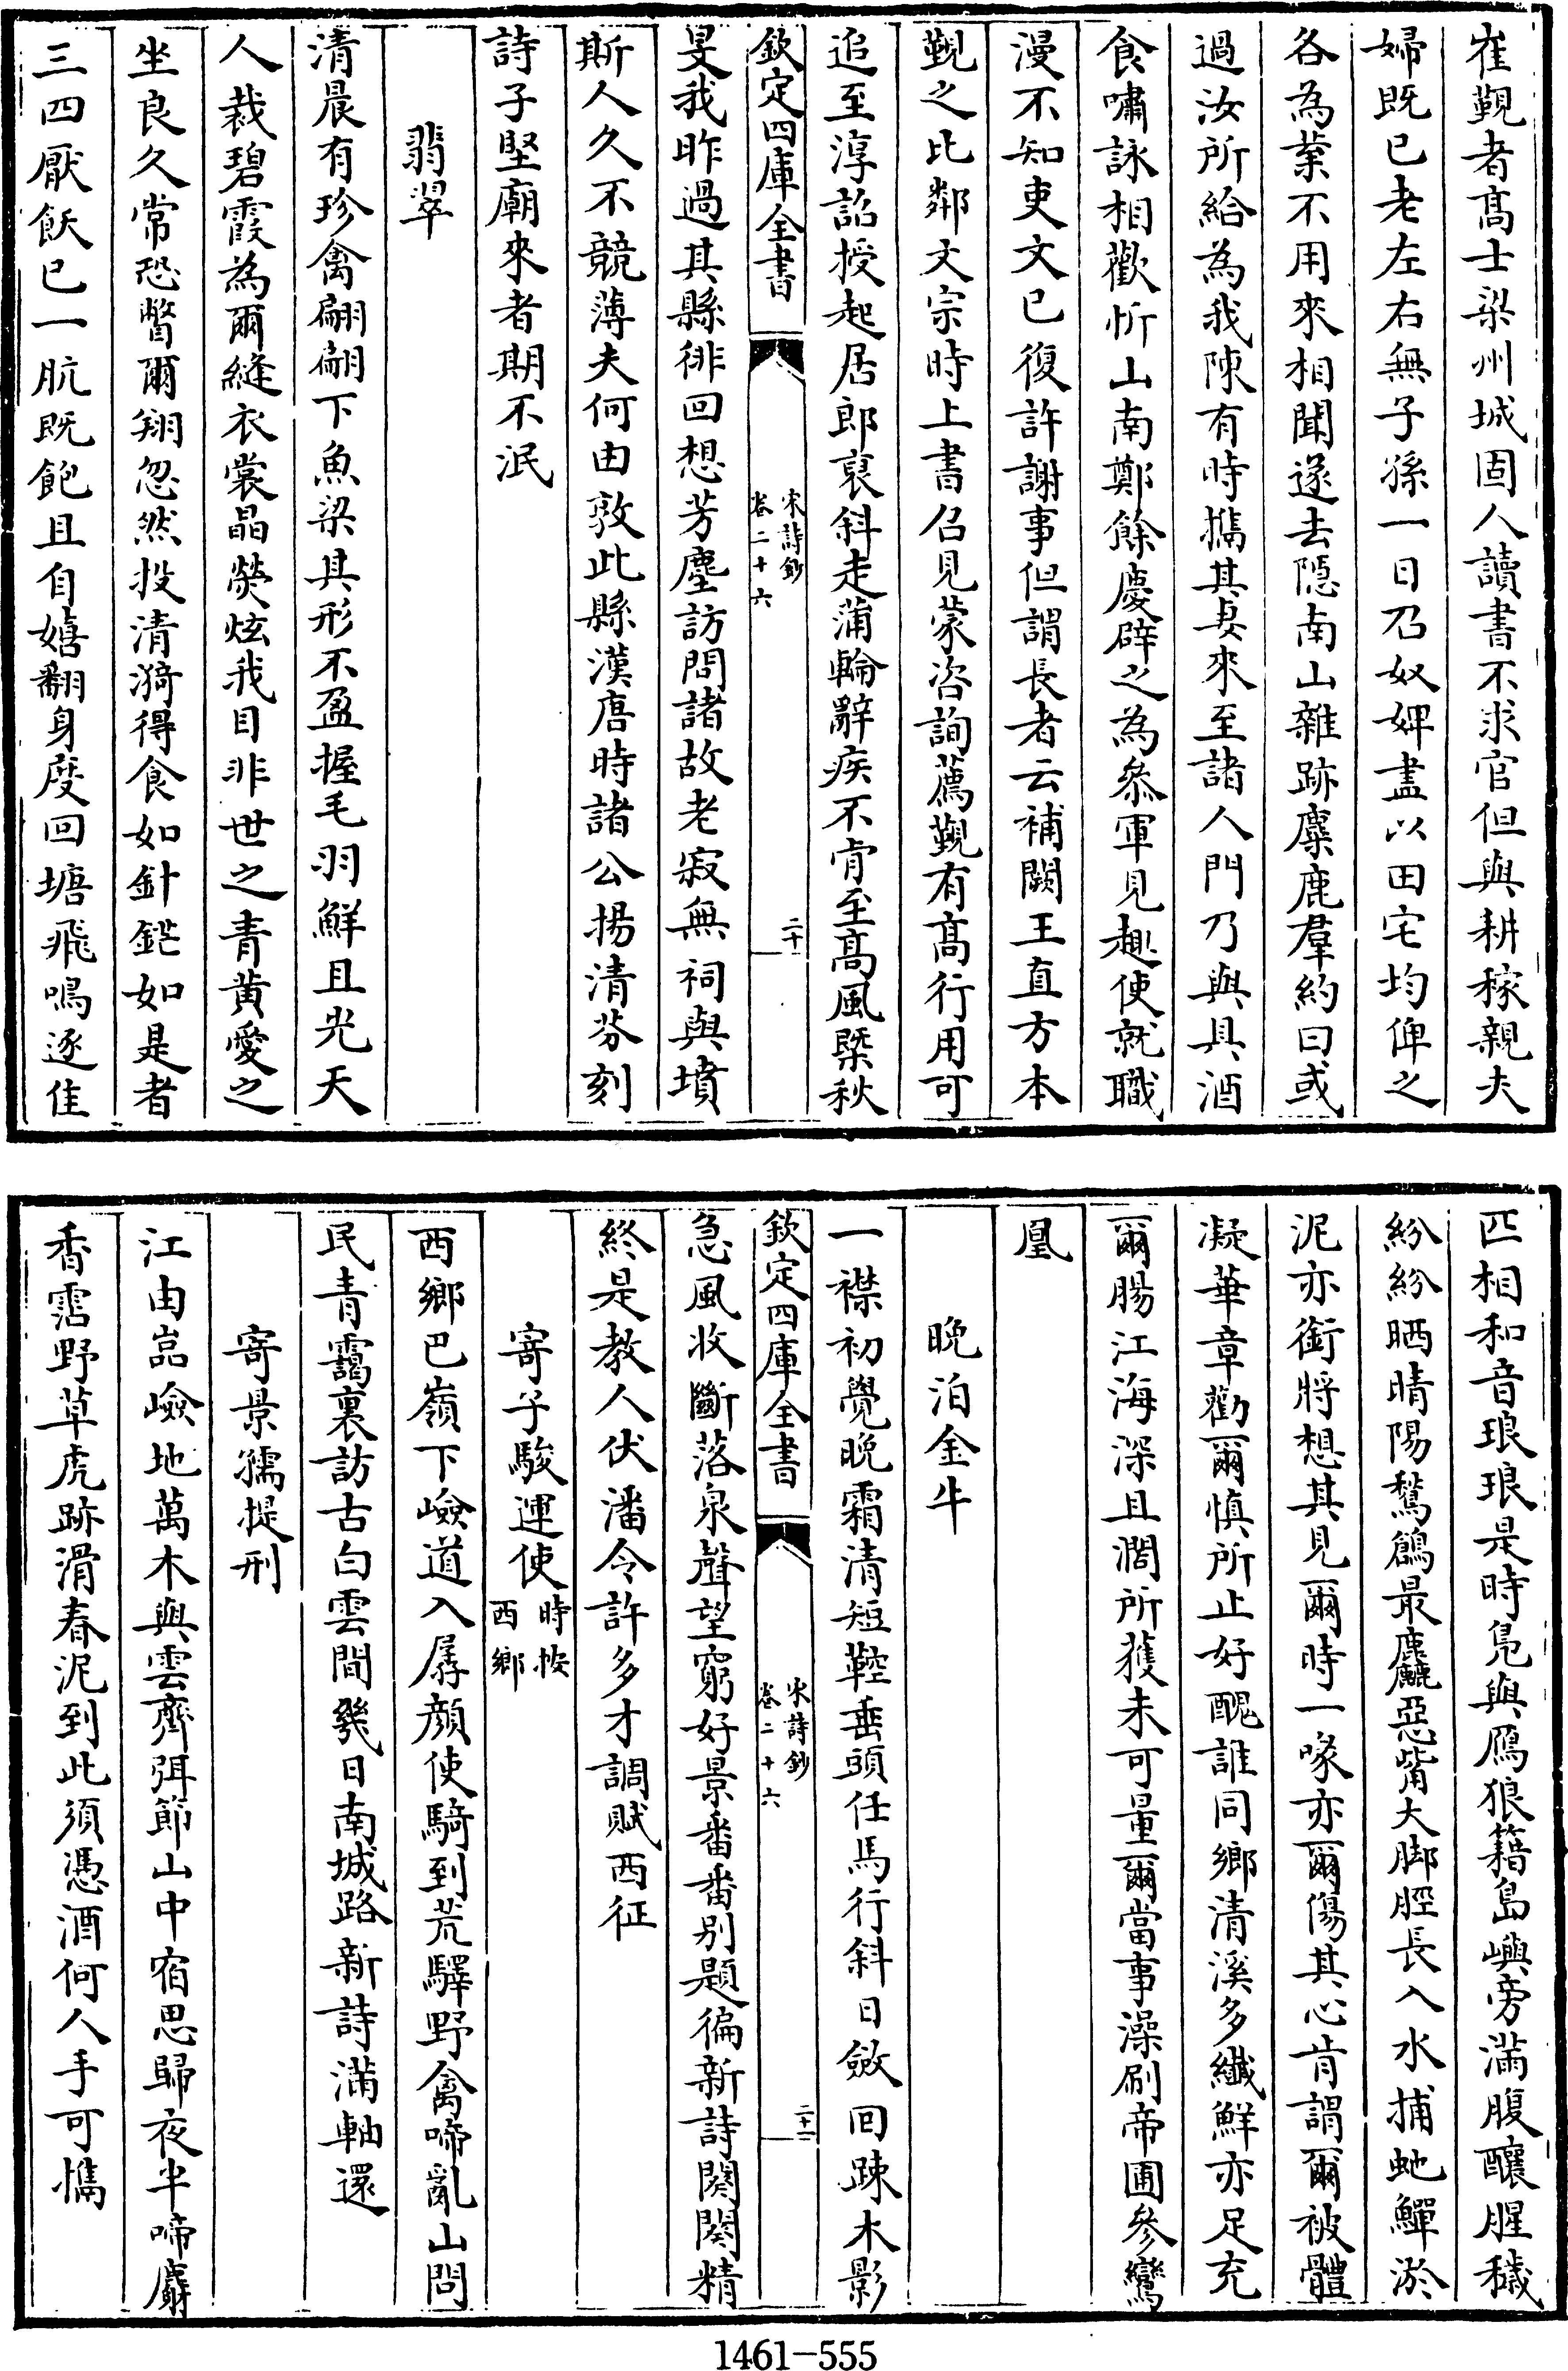 崔覲者髙士梁州城固人讀書不求官但與耕稼親夫
婦既已老左右無子孫一日召奴婢盡以田宅均俾之
各為業不用來相聞遂去隠南山雜跡麋鹿羣約曰或
過汝所給為我陳有時攜其妻來至諸人門乃與具酒
食嘯詠相歡忻山南鄭餘慶辟之為叅軍見趣使就職
漫不知吏文已復許謝事但謂長者云補闕王直方本
覲之比鄰文宗時上書召見蒙咨詢薦覲有髙行用可
追至淳詔授起居郎裒斜走蒲輪辭疾不肯至髙風槩秋
欽定四庫全書
宋詩鈔
卷二十六
二十
旻我昨過其縣徘回想芳塵訪問諸故老寂無祠與墳
斯人久不競薄夫何由敦此縣漢唐時諸公揚清芬刻
詩子堅廟來者期不泯
翡翠
清晨有珍禽翩翩下魚梁其形不盈握毛羽鮮且光天
人裁碧霞為爾縫衣裳晶熒炫我目非世之青黄愛之
坐良久常恐瞥爾翔忽然投清漪得食如針鋩如是者
三四厭飫已一肮既飽且自嬉翻身度回塘飛鳴逐佳
匹相和音琅琅是時鳬與鴈狼籍島嶼旁滿腹釀腥穢
紛紛晒晴陽鶖鶬最麤惡觜大脚脛長入水捕虵鱓淤
泥亦銜將想其見爾時一喙亦爾傷其心肯謂爾被體
凝華章勸爾慎所止好醜誰同鄉清溪多纖鮮亦足充
爾腸江海深且濶所獲未可量爾當事澡刷帝圃參鸞
凰
晩泊金牛
一襟初覺晩霜清短鞚垂頭任馬行斜日斂回疎木影
欽定四庫全書
宋詩鈔
卷二十六
二十一
急風收斷落泉聲望窮好景番番别題徧新詩闋闋精
終是教人伏潘令許多才調賦西征
寄子駿運使時按西鄉
西鄉巴嶺下嶮道入孱顔使騎到荒驛野禽啼亂山問
民青靄裏訪古白雲間幾日南城路新詩滿軸還
寄景孺提刑
江由嵓嶮地萬木與雲齊弭節山中宿思歸夜半啼麝
香霑野草虎跡滑春泥到此須憑酒何人手可㩦
1461-555